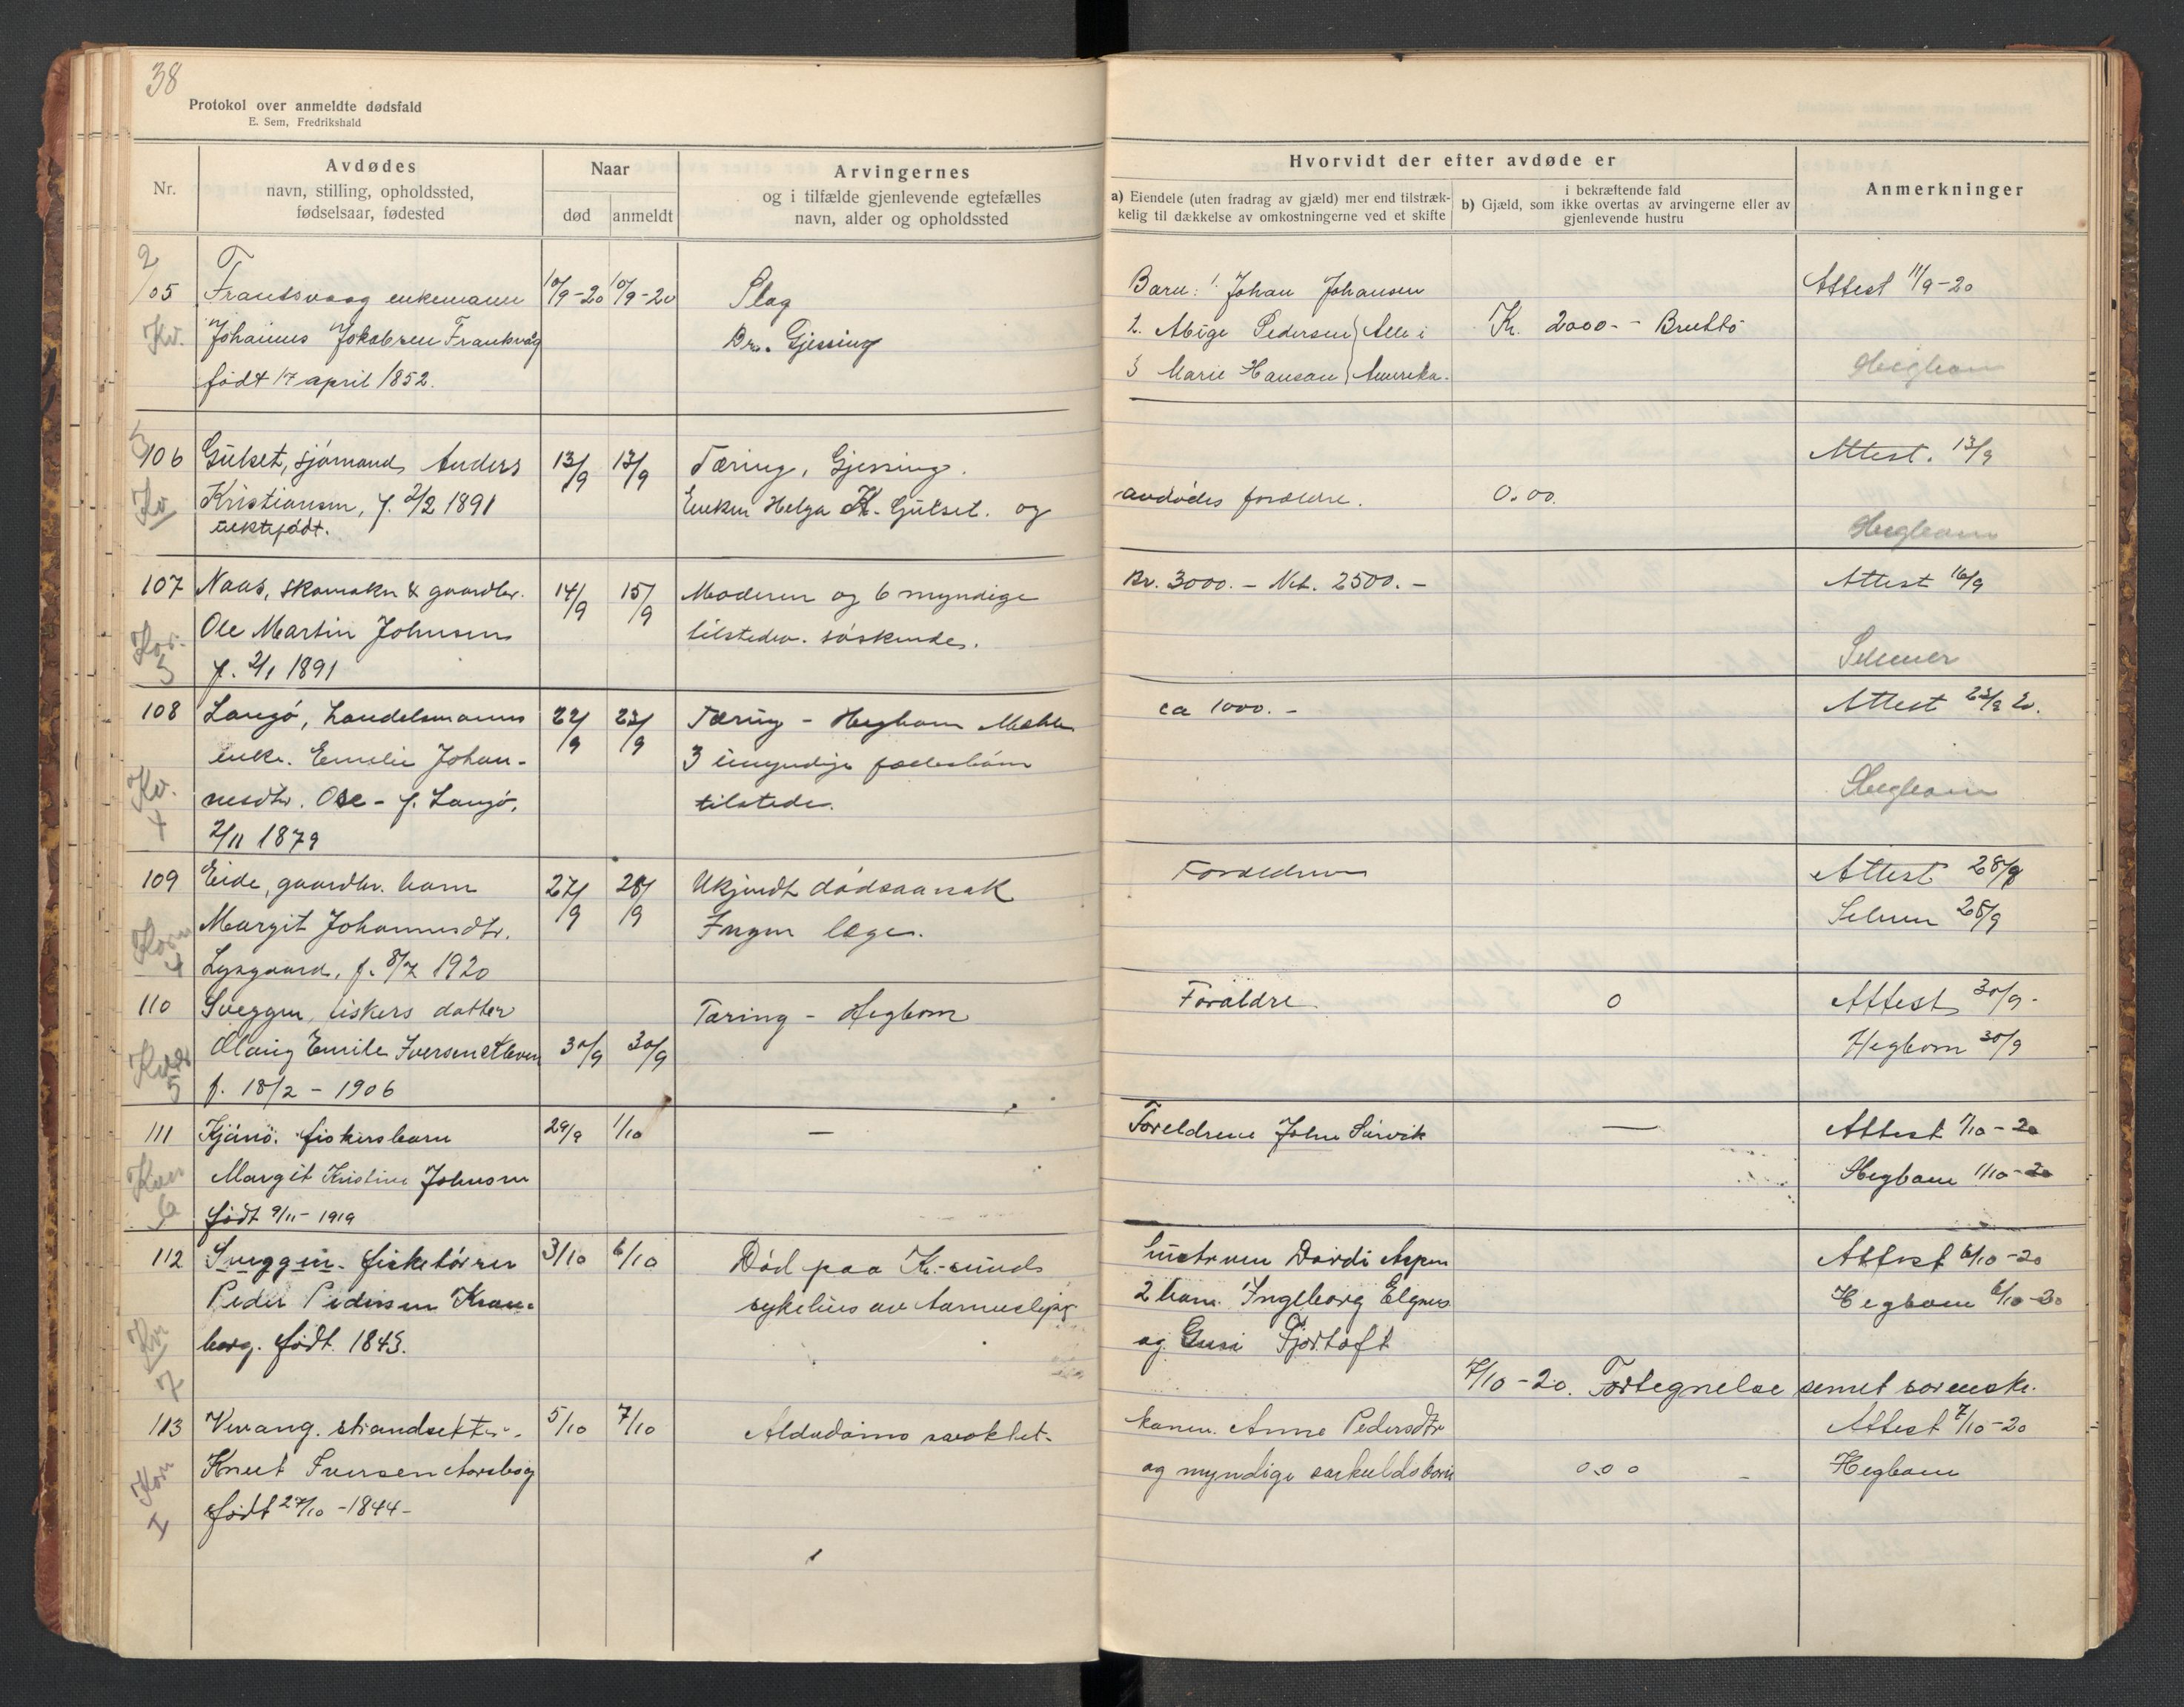 38
Protokol over anmeldte dødsfald
E. Sem, Fredrikshald
Nr.
Avdødes
navn, stilling, opholdssted,
fødselsaar, fødested
Naar
død
anmeldt
Arvingernes
og i tilfælde gjenlevende egtefælles
navn, alder og opholdssted
Hvorvidt der efter avdøde er
a) Eiendele (uten fradrag av gjæld) mer end tilstræk-
kelig til dækkelse av omkostningerne ved et skifte
i bekræftende fald
b) Gjæld, som ikke overtas av arvingerne eller av
gjenlevende hustru
Anmerkninger
2
105 Frantsvaag enkemann 10/9-20 10/9-20 Slag Barn: 1. Johan Johansen Attest 11/9-20
Kv. Johannes Jakobsen Frantsvåg Dr. Gjessing 2. Abige Pedersen Alle i Kr. 2000.- Brutto
født 17 april 1852. 3 Marie Hansen Amerika. Hegbom
3
106 Gulset, sjømand Anders 13/9 13/9 Tæring, Gjessing. Attest. 13/9
Kv Kristiansen, f. 2/2 1891 Enken Helga K. Gulset. og avdødes forældre. 0.00.
ektefødt. Hegbom
107 Naas, skomaker & gaardbr. 14/9 15/9 Moderen og 6 myndige Br. 3000.- Net. 2500.- Attest 16/9
Kor. Ole Martin Johnsen tilstedev. søskende.
3 f. 2/1 1891 Selmer
108 Langø, handelsmanns 22/9 23/9 Tæring - Hegbom ca 1000.- Attest 23/9 20.
enke. Emelie Johan- 3 umyndige fællesbørn
Kv. nesdtr. Ose - f. Langø, tilstede. Hegbom
4 2/11 1879
109 Eide, gaardbr. barn 27/9 28/9 Ukjendt dødsaarsak Forældrene Attest 28/9
Korn Margit Johannesdtr. Ingen læge. Selmer 28/9
4 Lysgaard, f. 8/7 1920
110 Sveggen, fiskers datter Tæring - Hegbom Forældre 0 Attest 30/9-
Olaug Emilie Iversen 30/9 30/9 Hegbom 30/9
5 f. 18/2 - 1906
111 Kjønø. fiskersbarn 29/9 1/10 — Foreldrene John Sørvik — Attest 1/10-20
Margit Kristine Johnsen Hegbom 1/10-20
6 født 9/11-1919
112 Sveggen- fisketørrer 3/10 6/10 Død paa Kr.-sunds hustruen Dordi Aspen Attest 6/10-20
Peder Pedersen Kran= sykehus av 2 barn. Ingeborg Elgnes Hegbom 6/10-20
Kv borg. født 1843. og Gusi Fjørtoft
7 7/10-20. Fortegnelse senst sorensk.
113 Vevang. strandsitter 5/10 7/10 Alderdoms svakhet- konen. Anne Pedersdtr Attest 7/10-20
Korn Knut Iversen født 27/10-1844- og myndige særkuldsbørn 0.00 - Hegbom
I